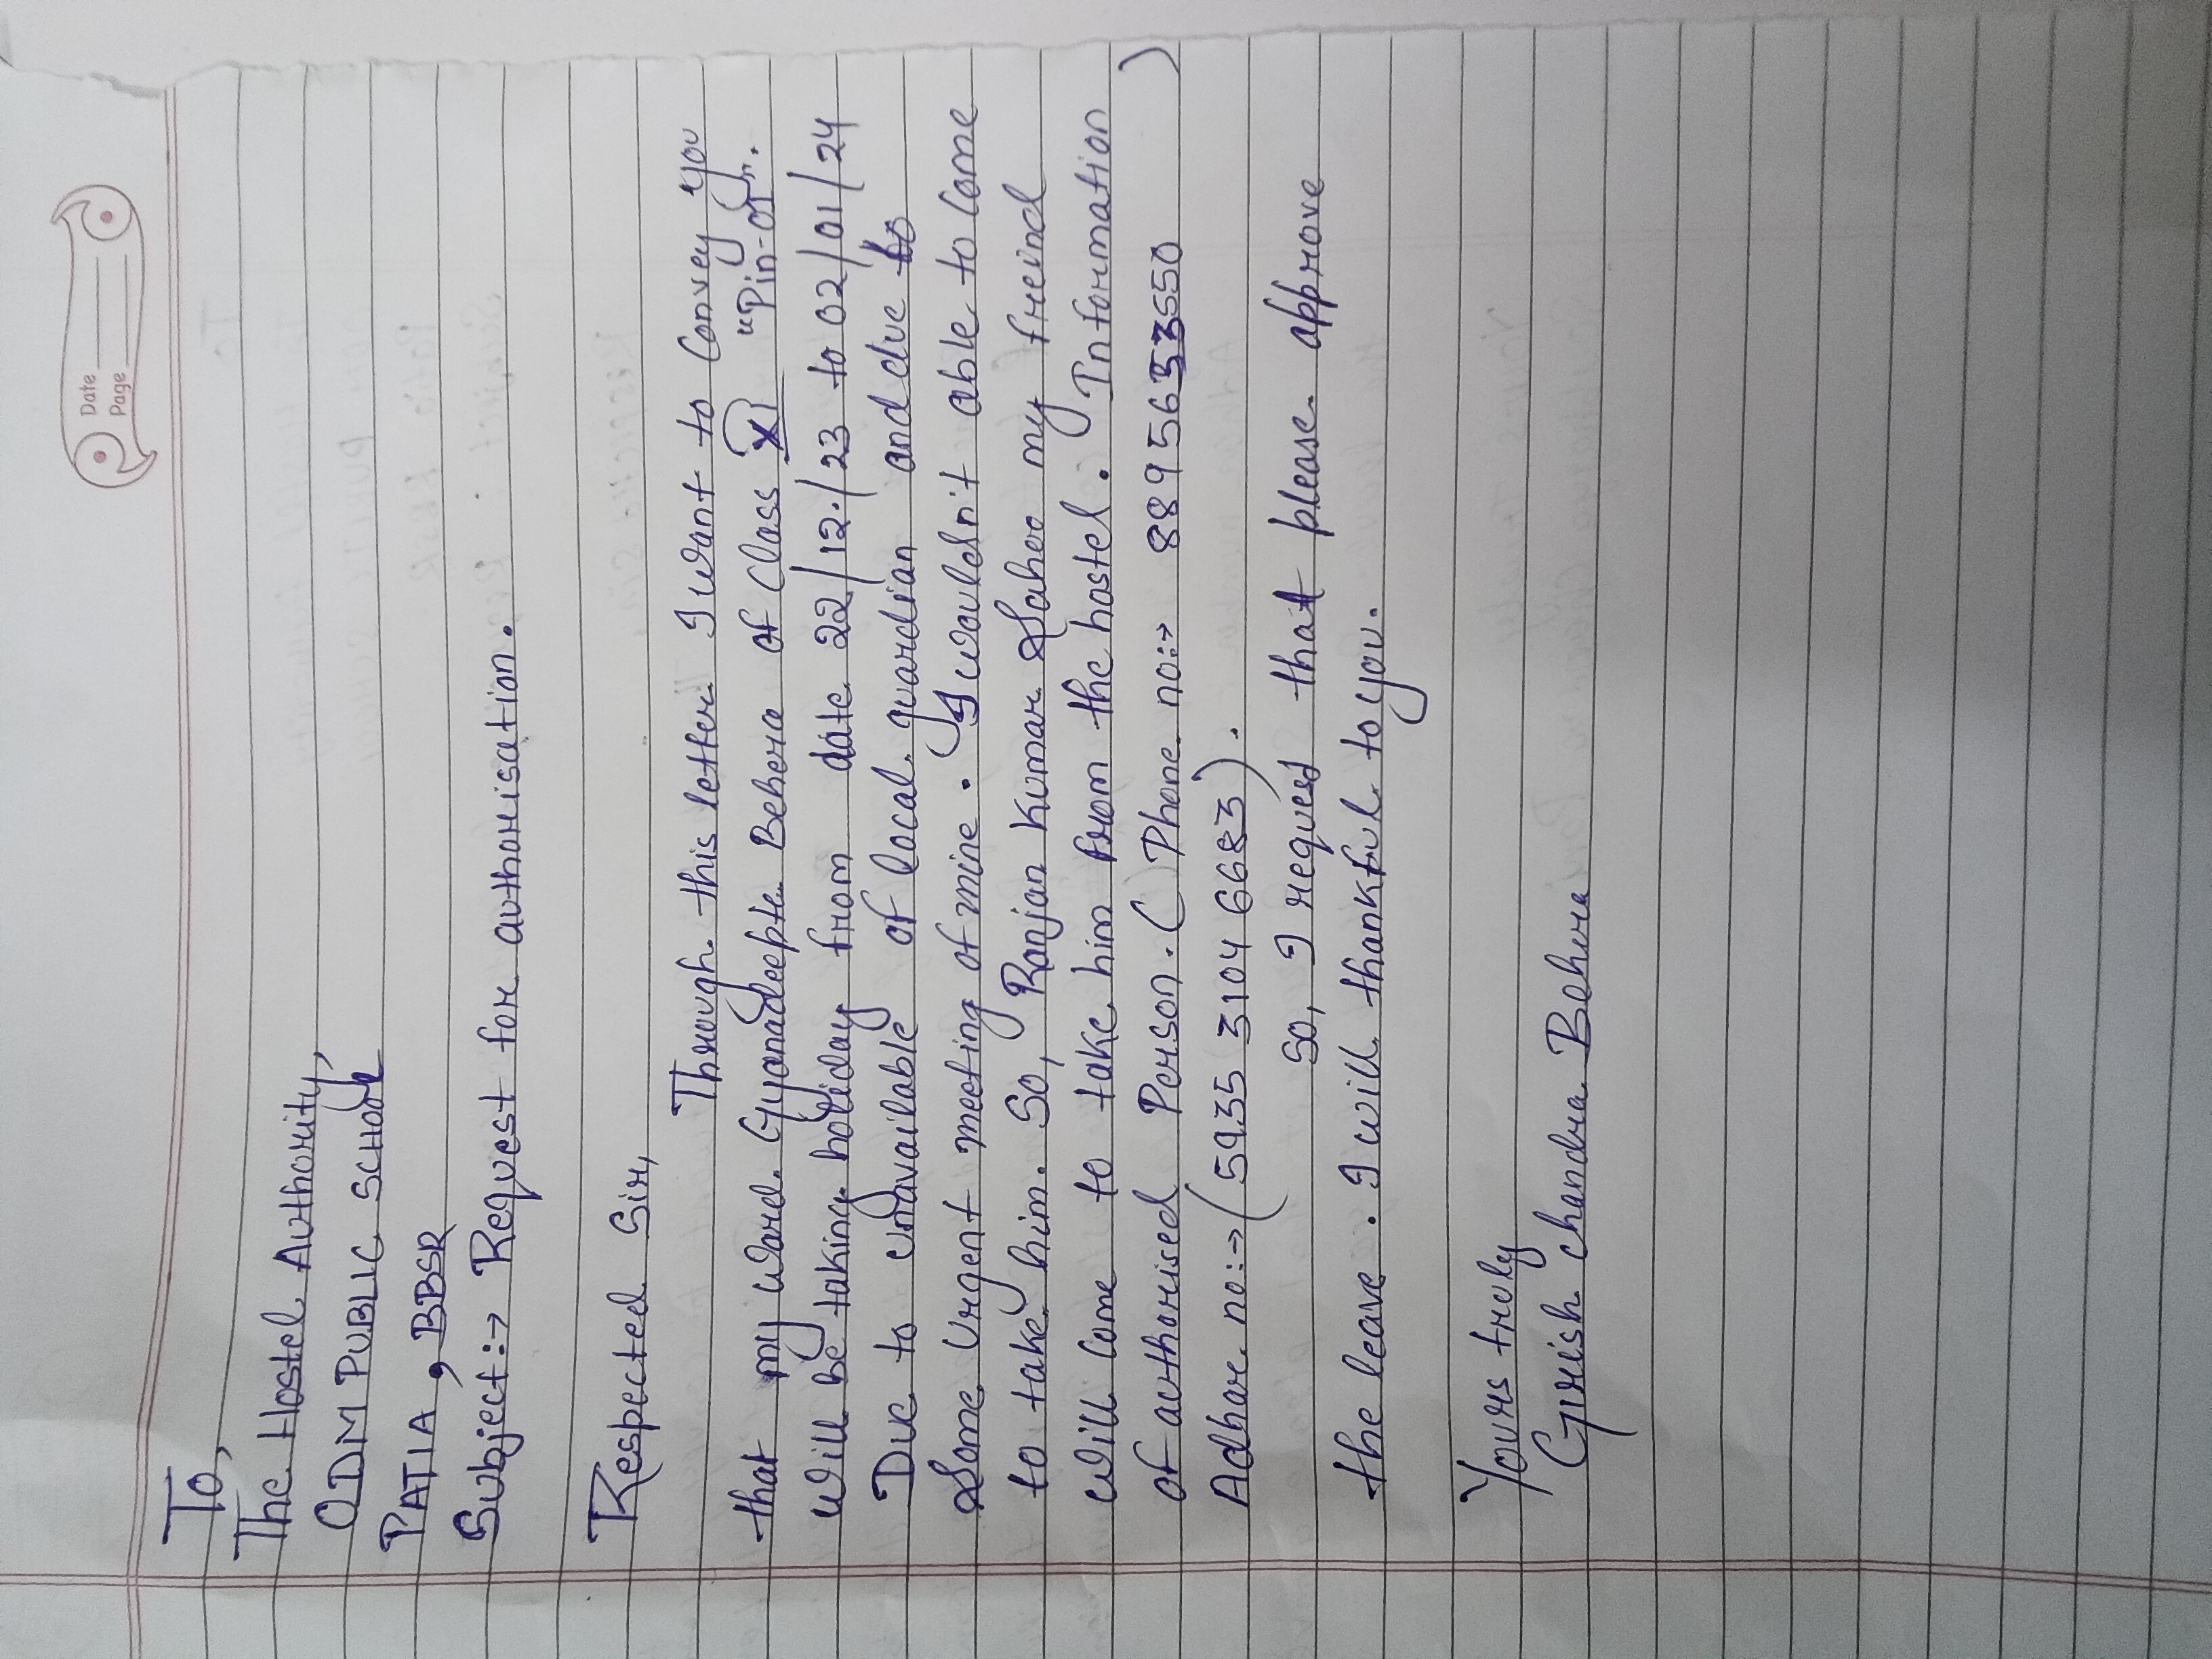 Date
Page
To,
The Hostel Authority,
ODM PUBLIC SCHOOL
PATIA, BBSR
Subject:→ Request for authorisation.
Respected Sir,
Through this letter I want to Convey you
that my ward Gyanadeepte Behera of Class XI "Pin-01".
will be taking holiday from date 22/12/23 to 02/01/24
Due to unavailable of local guardian and due to
Some Urgent meeting of mine. I wouldn't able to Come
to take him. So, Ranjan Kumar Sahoo my freind
will Come to take him from the hostel. Information
of authorised Person. (Phone no:→ 8895633550)
Adhar no:→ (5935 3104 6683).
So, I request that please approve
the leave. I will thankful to you.
Yours truly
Girish chandra Behera